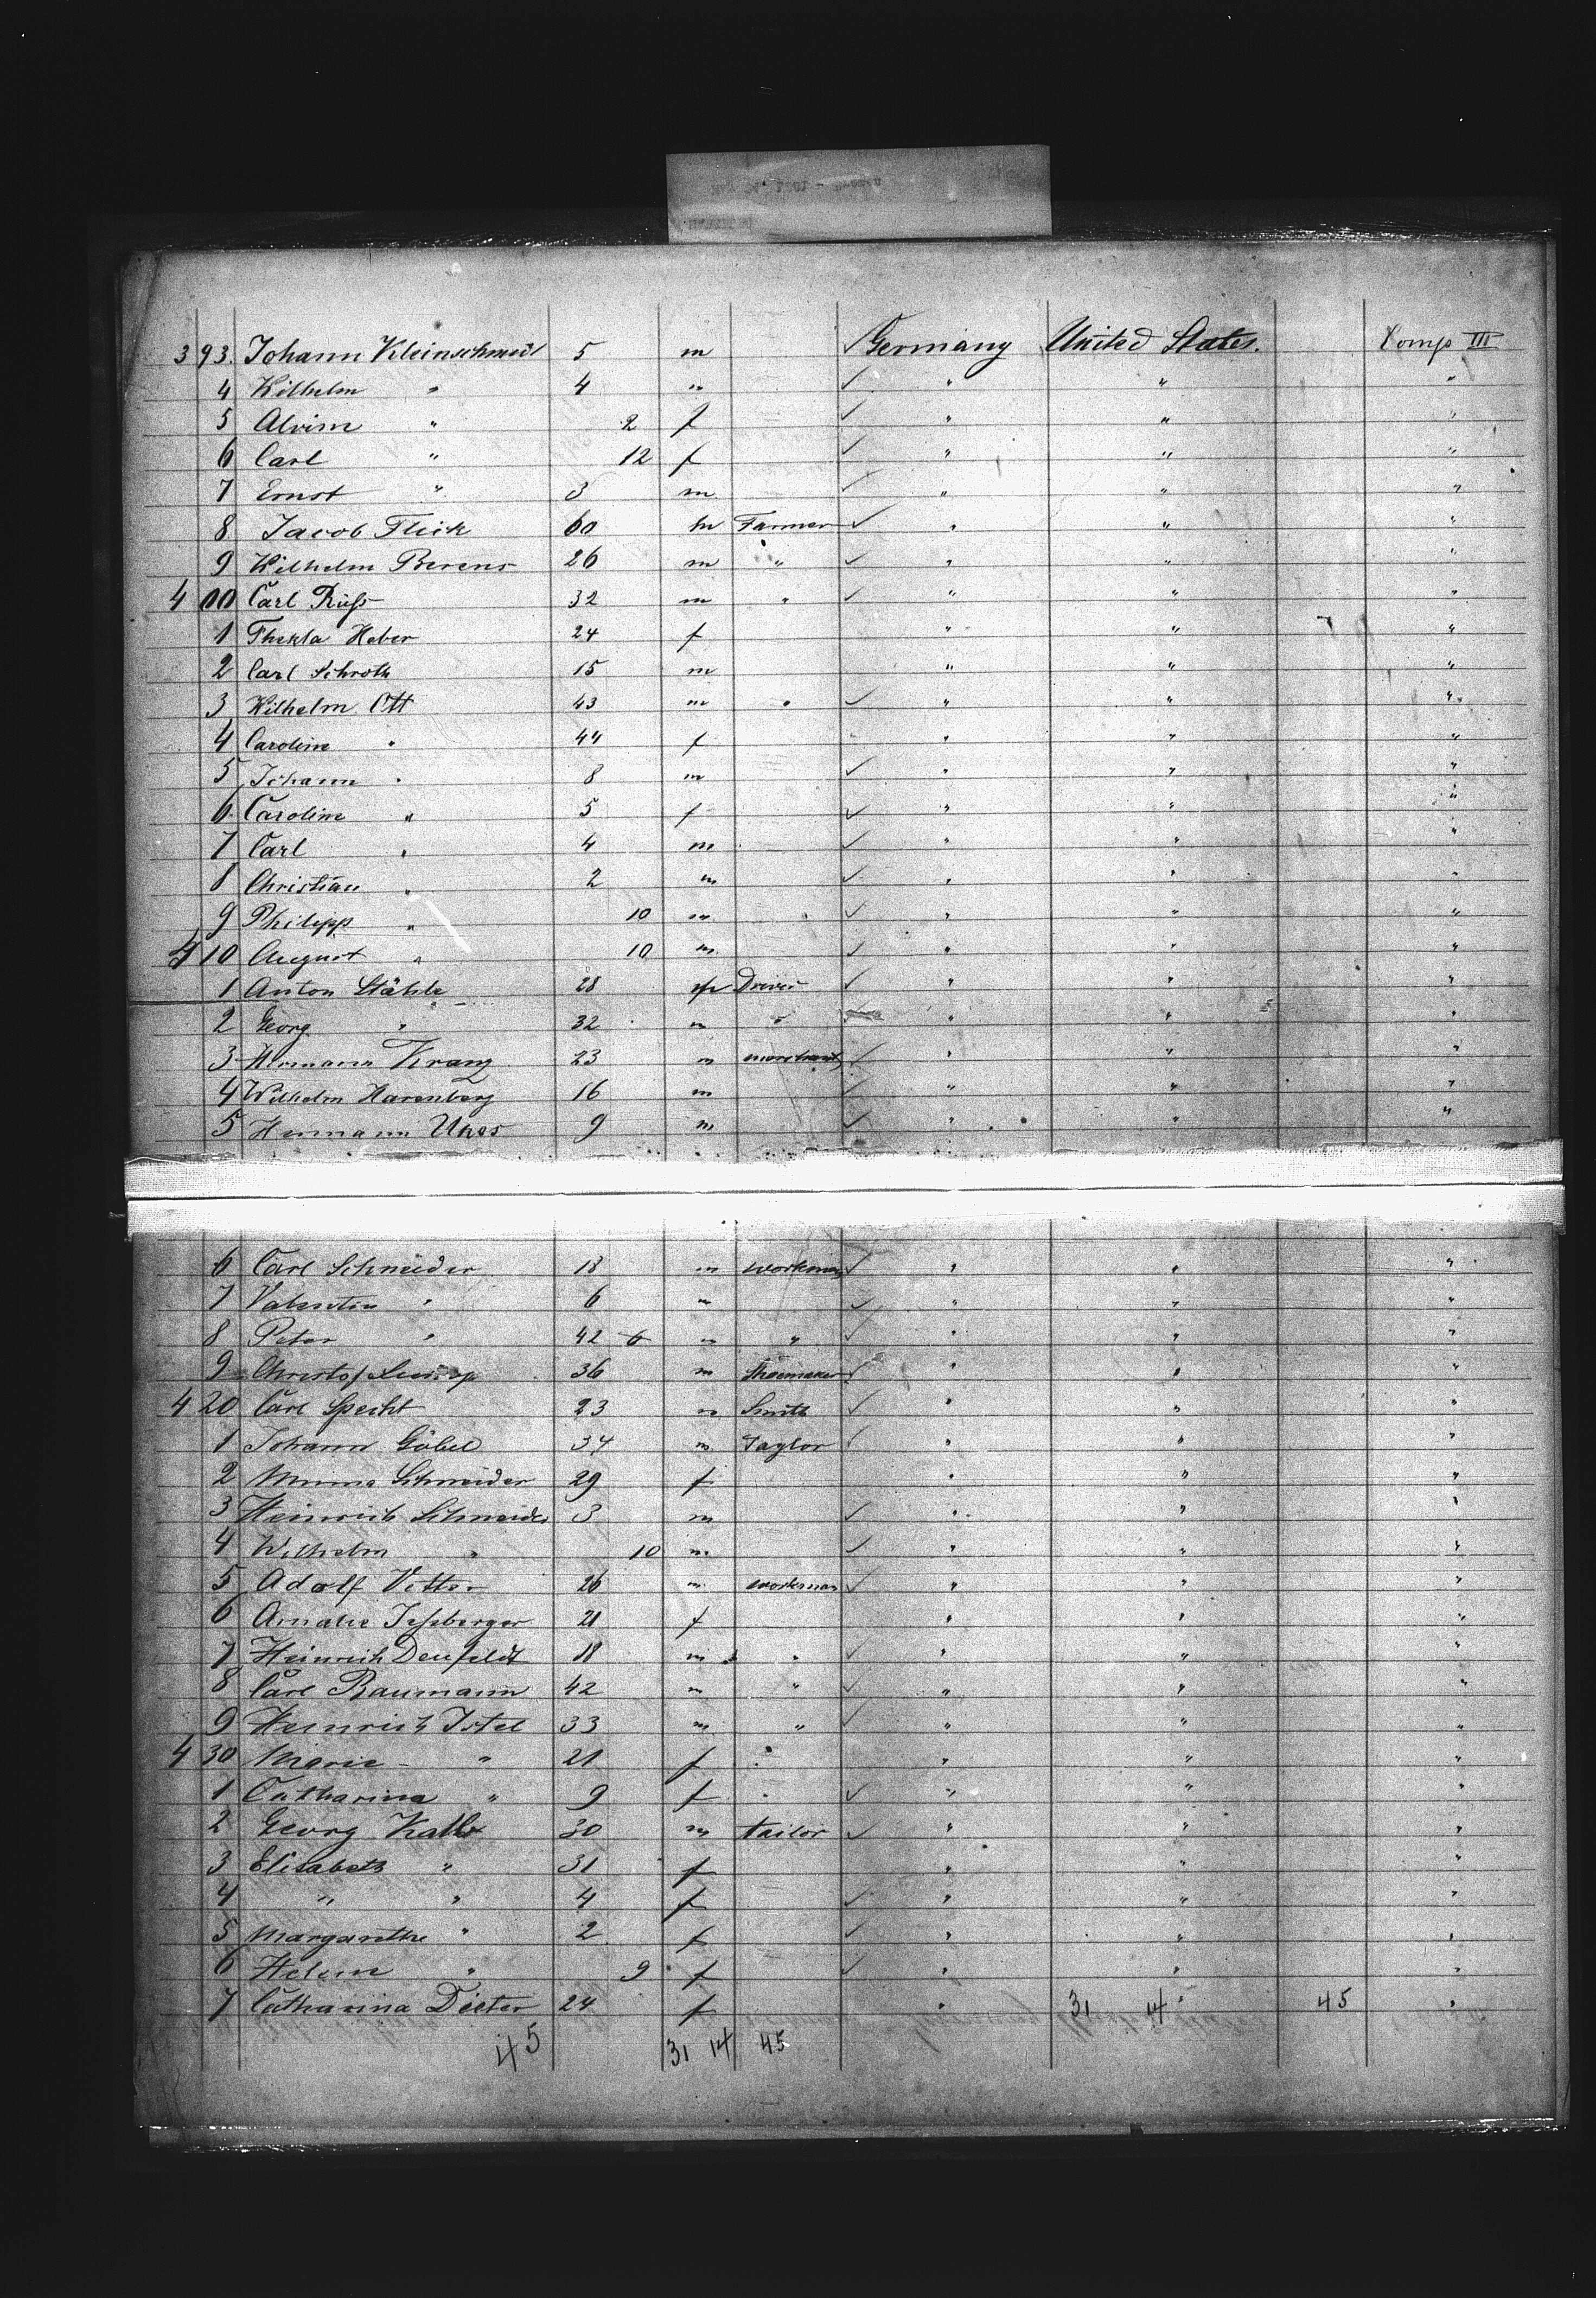 393. Johann Kleinschmidt 5 m ✓ Germany United States. Comp III
4 Wilhelm " 4 m ✓ " " "
5 Alvim " 2 f ✓ " " "
6 Carl " 12 f ✓ " " "
7 Ernst " 3 m ✓ " " "
8 Jacob Flick 60 m Farmer ✓ " " "
9 Wilhelm Berens 26 m " ✓ " " "
400 Carl Ruß 32 m " ✓ " " "
1 Thekla Heber 24 f " " "
2 Carl Schroth 15 m " " "
3 Wilhelm Ott 43 m " ✓ " " "
4 Caroline " 44 f " " "
5 Johann " 8 m ✓ " " "
6 Caroline " 5 f ✓ " " "
7 Carl " 4 m ✓ " " "
8 Christian " 2 m ✓ " " "
9 Philipp " 10 m ✓ " " "
410 August " 10 m ✓ " " "
1 Anton Stähle 28 m Driver ✓ " " "
2 Georg " 32 m " " " "
3 Hermann Kranz 23 m merchant ✓ " " "
4 Wilhelm Harenberg 16 m ✓ " " "
5 Hermann 9 m ✓ " " "
6 Carl Schneider 18 m workman ✓ " " "
7 Valentin " 6 m ✓ " " "
8 Peter " 42 m " ✓ " " "
9 Christof 36 m Shoemaker ✓ " " "
420 Carl Specht 23 m Smith ✓ " " "
1 Johann Göbel 34 m Taylor ✓ " " "
2 Minna Schneider 29 f " " "
3 Heinrich Schneider 3 m ✓ " " "
4 Wilhelm " 10 m ✓ " " "
5 Adolf Vetter 26 m workman ✓ " " "
6 Amalie 21 f " " "
7 Heinrich Denfeldt 18 m " ✓ " " "
8 Carl Baumann 42 m " ✓ " " "
9 Heinrich Istel 33 m " ✓ " " "
430 Marie " 21 f " " "
1 Catharina " 9 f ✓ " " "
2 Georg Kalb 30 m tailor ✓ " " "
3 Elisabeth " 31 f " " "
4 " " 4 f ✓ " " "
5 Margarethe " 2 f ✓ " " "
6 Helene " 9 f ✓ " " "
7 Catharina Dieter 24 f " 31 14 " 45 "
45 31 14 45